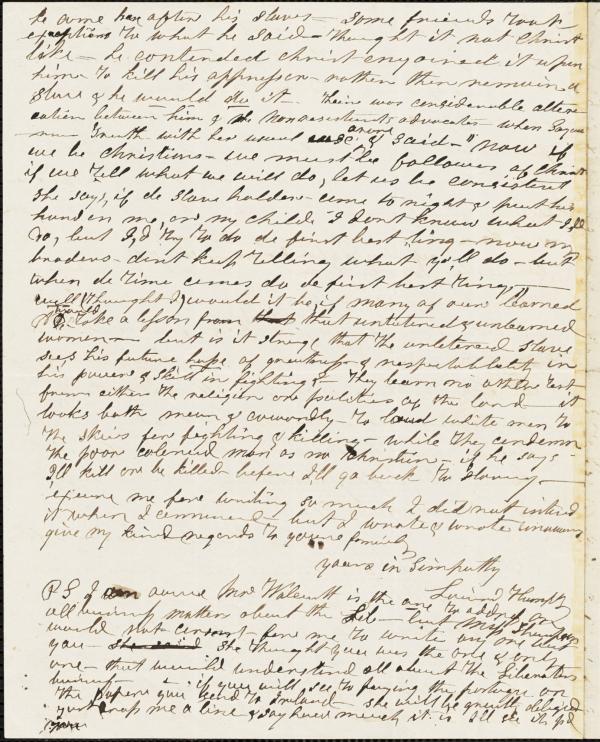 he come here after his slaves — some friends took
exceptions to what he said — thought it not Christ
like — he contended Christ enjoined it upon
him to kill his oppressor — rather then remain a
slave & he would do it — their was considerable alter
cation between him & the nonresistants advocates — when Sojour
ner Truth with her usual arose & said — now if
we be christians — we must be followers of Christ
if we tell what we will do, let us be consistent
she says, if de slave holder — come to night & put his
hand on me, or my child I dont know what I'd
do, but I'd try to do de first best ting — now my
broders — dont keep telling what you'll do — but
when de time comes do de first best ting, —
well (thought I) would it be, if many of our learned
would take a lesson from that untutored & unlearned
woman — but is it strange that the unlettered slave
sees his future hope of greatness & respectability in
his power & skill in fighting — they learn no other test
from either the religion or politics of the land — it
looks both mean & cowardly — to laud white men to
the skies for fighting & killing — while they condemn
the poor colored man as no Christian — if he says
I'll kill or be killed — before I'll go back to slavery —
excuse me for writing so much I did not intend
it when I commenced but I wrote & wrote
give my kind regards to youre family
yours in Simpathy
P S I am aware Mr Walcutt is the one to address on
all business matters about the Lib — but
would not consent for me to write any one but
you — she said she thought you was the one & only
one — that would understand all about the Liberators
— if you will see to paying the postage on
the papers you send to — she will be greatly obliged
just drop me a line & say how much it is Ill see its pd